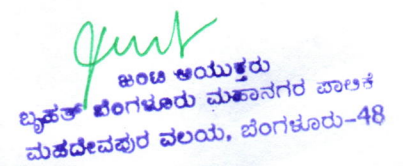 ಜಂಟಿ ಆಯುಕ್ತರು
ಬೃಹತ್ ಬೆಂಗಳೂರು ಮಹಾನಗರ ಪಾಲಿಕೆ
ಮಹದೇವಪುರ ವಲಯ, ಬೆಂಗಳೂರು-48